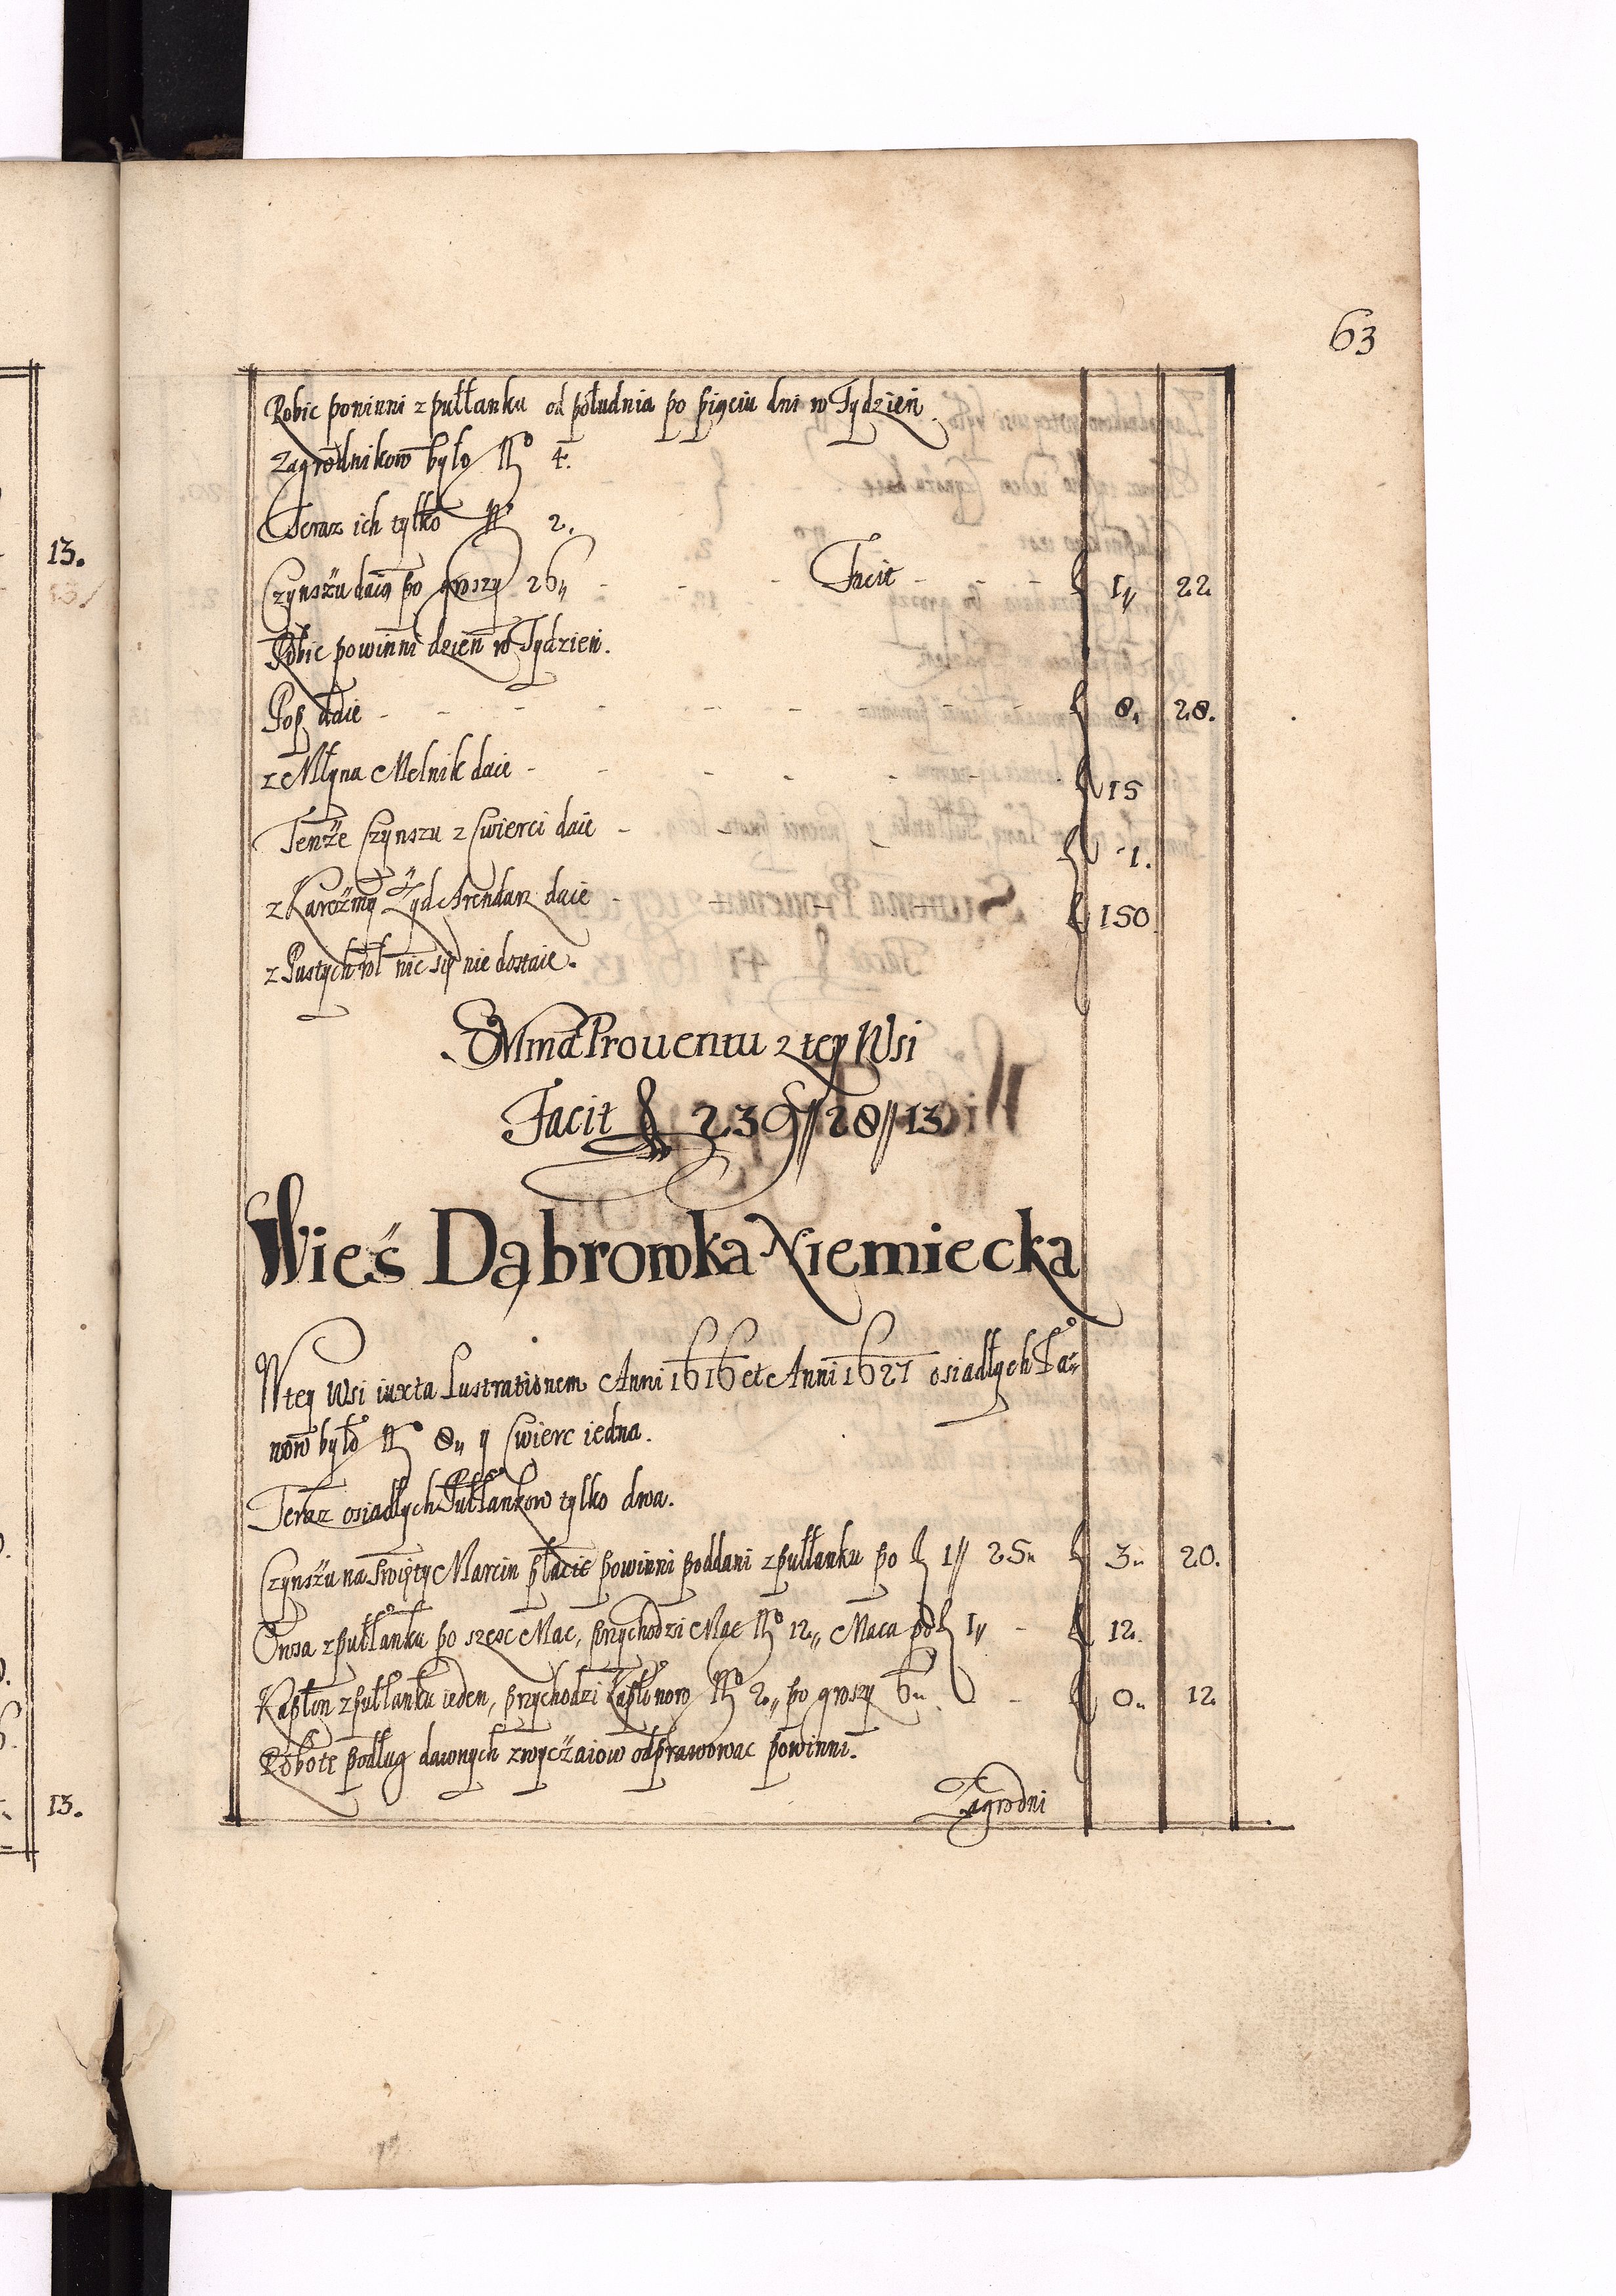 63
Robic powinni z pułłanku od południa po pięciu dni w Tydzień.
Zagrodnikow było No 4.
Teraz ich tylko No 2.
Czynszu daią po groszy 26 Facit fl 1 22.
Robic powinni dzień w Tydzień.
Pop daie fl 8. 28.
z Młyna Melnik daie fl 15
Tenże Czynszu z Cwierci daie fl 1.
z Karczmy Żyd Arendarz daie fl 150
z Pustych rol nic się nie dostaie.
Summa Prouentu z tey Wsi
Facit fl 239 // 28 // 13
Wieś Dąbrowka Niemiecka
W tey Wsi iuxta Lustrationem Anni 1616 et Anni 1627 osiadłych Ła=
now było No 8 y Cwierc iedna.
Teraz osiadłych Pułłankow tylko dwa.
Czynszu na Swięty Marcin płacić powinni poddani z pułłanku po fl 1 // 25 fl 3 20.
Owsa z pułłanku po szesc Mac, przychodzi Mac No 12 Maca po fl 1 fl 12.
Kapłon z pułłanku ieden, przychodzi Kapłonow No 2 po groszy 6 fl 0 12
Robote podług dawnych zwyczaiow odprawowac powinni.
Zagrodni
13.
13.